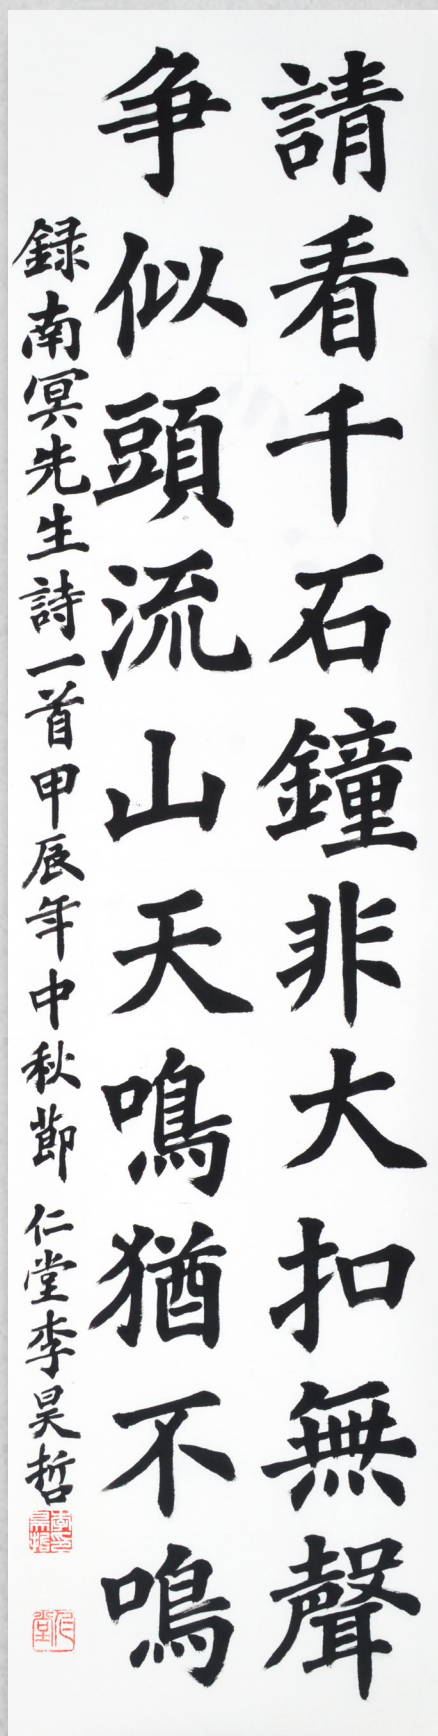 請看千石鐘非大扣無聲
争似頭流山天鳴猶不鳴
録南冥先生詩一首甲辰年中秋節 仁堂李昊哲
李昊哲印
仁堂